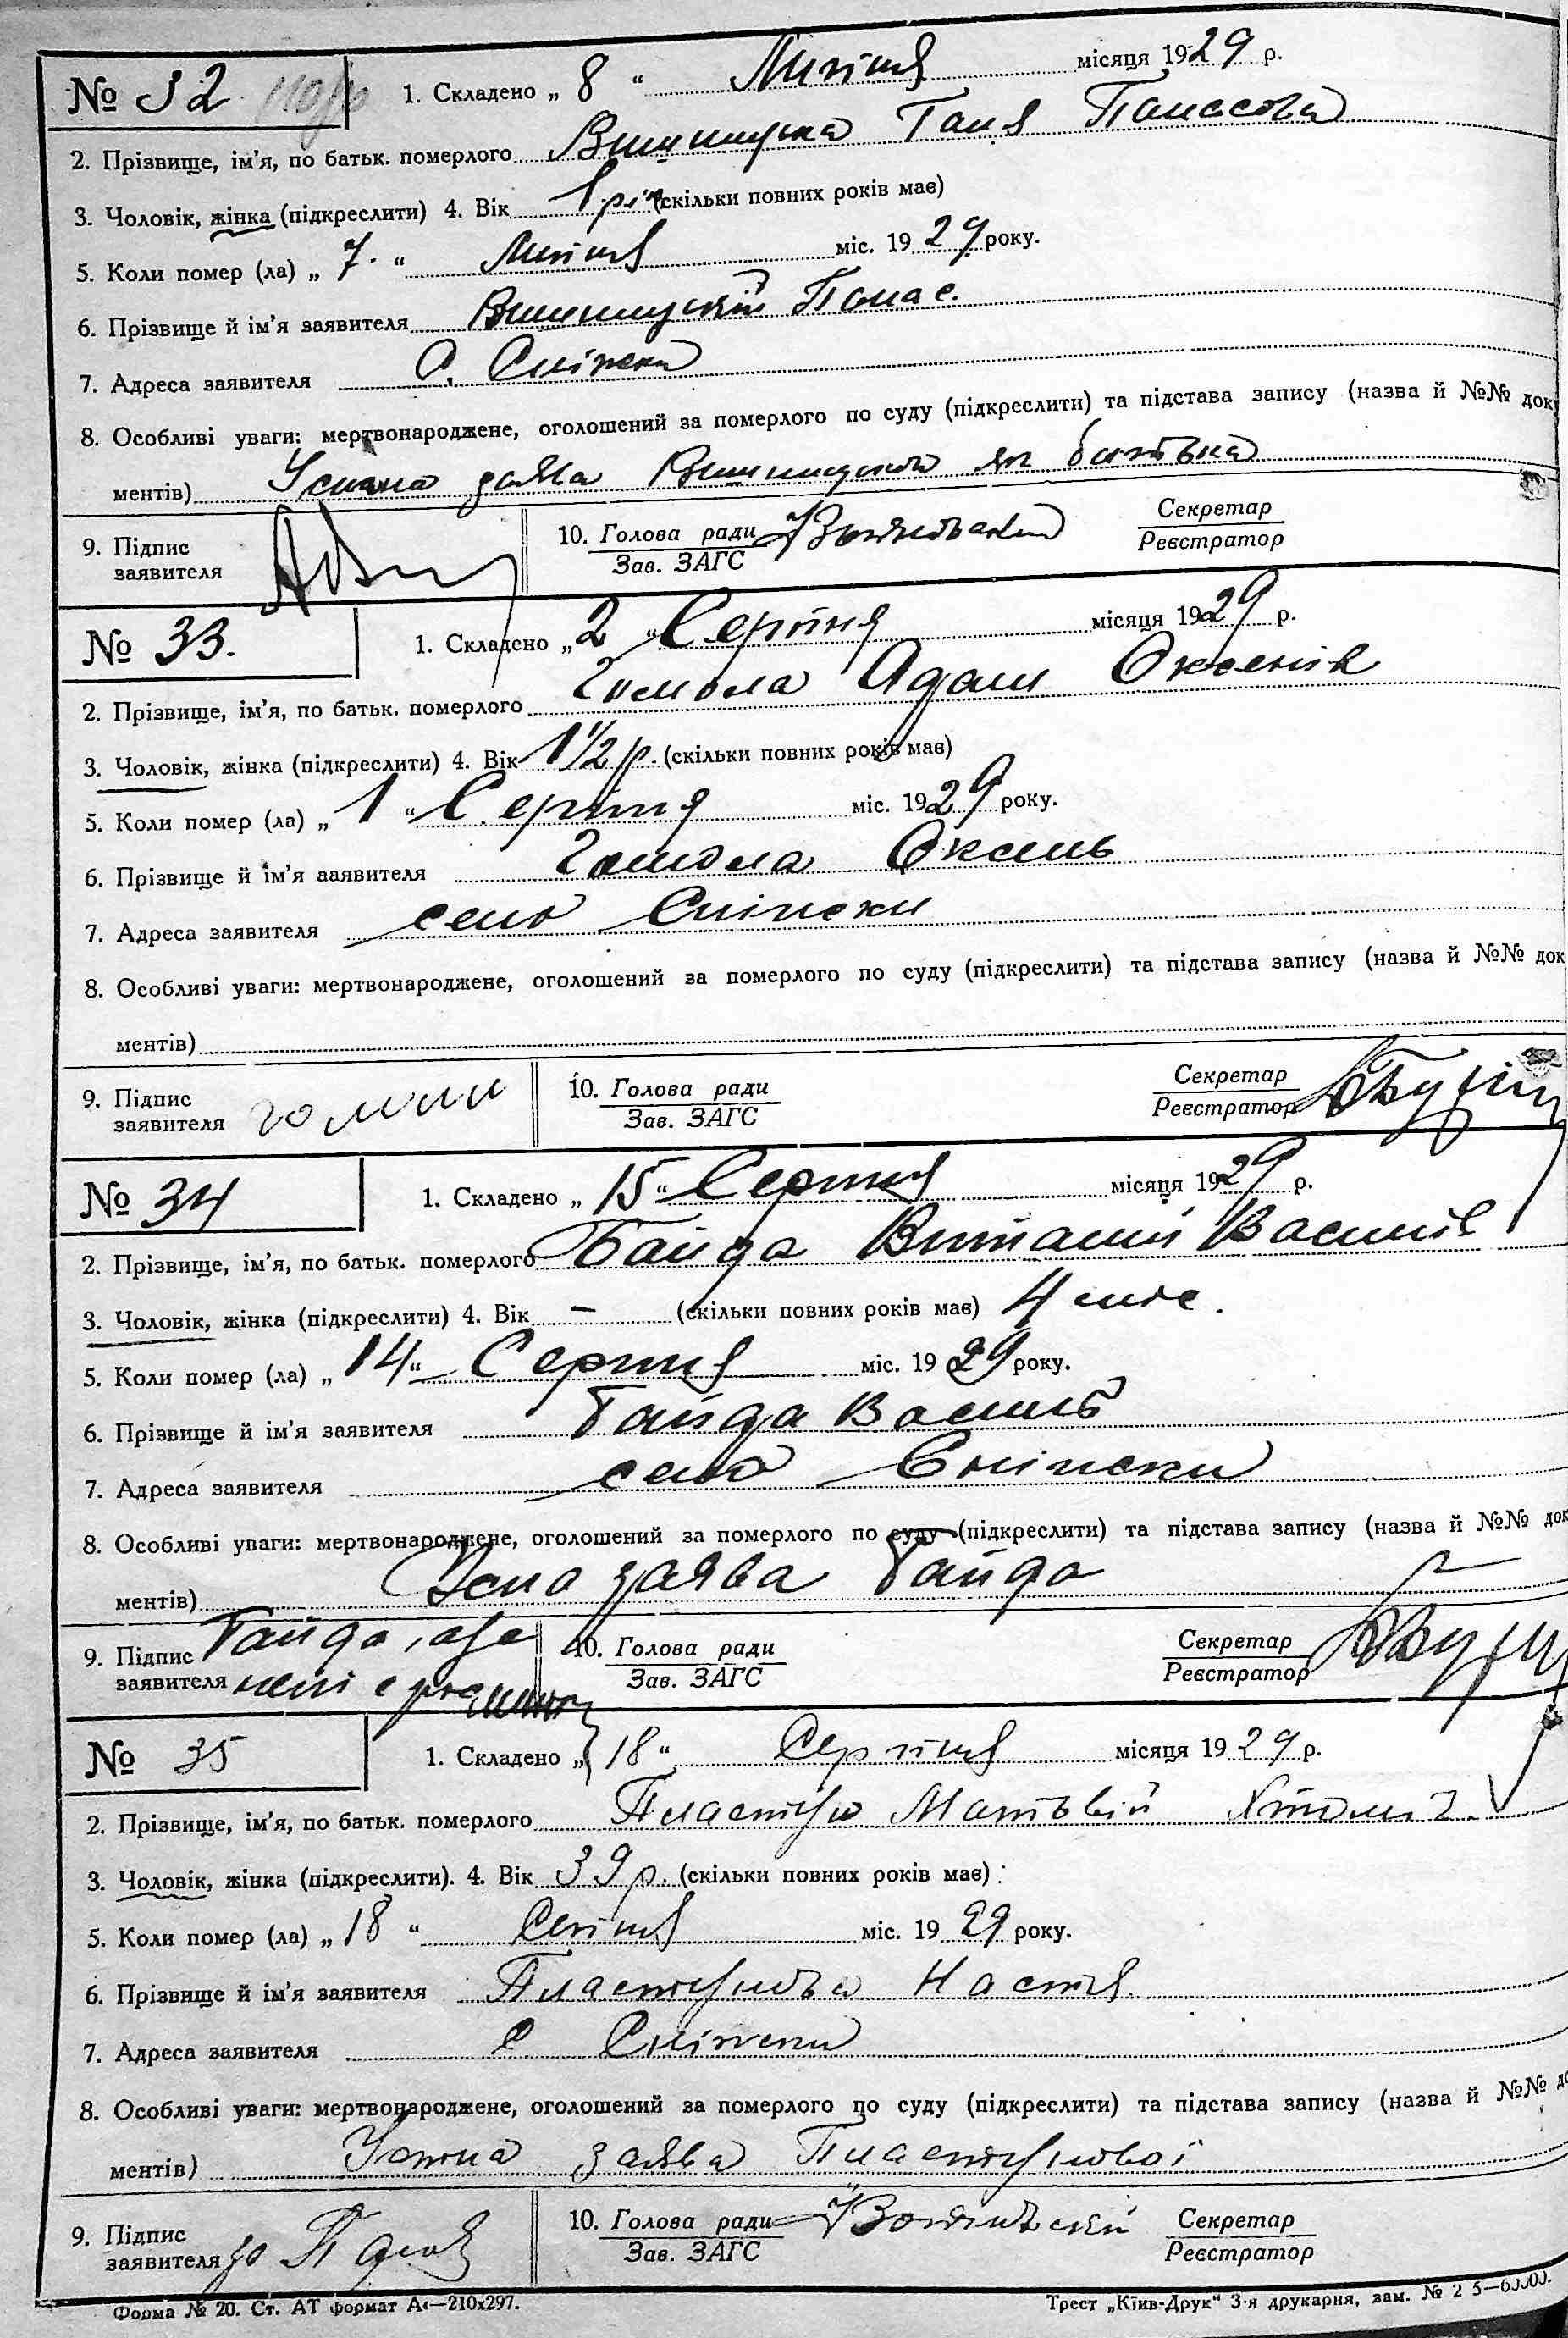 № 32 1. Складено „ 8 “ Липня місяця 1929 р.
2. Прізвище, ім'я, по батьк. померлого Ганя Панасова
3. Чоловік, жінка (підкреслити) 4. Вік 1 рік (скільки повних років має)
5. Коли помер (ла) „ 7. “ Липня міс. 1929 року.
6. Прізвище й ім'я заявителя Панас.
7. Адреса заявителя С. Сніжки
8. Особливі уваги: мертвонароджене, оголошений за померлого по суду (підкреслити) та підстава запису (назва й №№ док
ментів) Усна заява як батька
9. Підпис заявителя
10. Голова ради Зав. ЗАГС
Секретар Реєстратор
№ 33. 1. Складено „ 2 “ Серпня місяця 1929 р.
2. Прізвище, ім'я, по батьк. померлого Гомола Адам Оксенів
3. Чоловік, жінка (підкреслити) 4. Вік 1 1/2 р. (скільки повних років має)
5. Коли помер (ла) „ 1 “ Серпня міс. 1929 року.
6. Прізвище й ім'я заявителя Гомола Оксень
7. Адреса заявителя село Сніжки
8. Особливі уваги: мертвонароджене, оголошений за померлого по суду (підкреслити) та підстава запису (назва й №№ док
ментів)
9. Підпис заявителя
10. Голова ради Зав. ЗАГС
Секретар Реєстратор
№ 34 1. Складено „ 15 “ Серпня місяця 1929 р.
2. Прізвище, ім'я, по батьк. померлого Гайда Віталий Василів
3. Чоловік, жінка (підкреслити) 4. Вік — (скільки повних років має) 4 міс.
5. Коли помер (ла) „ 14 “ Серпня міс. 1929 року.
6. Прізвище й ім'я заявителя Гайда Василь
7. Адреса заявителя село Сніжки
8. Особливі уваги: мертвонароджене, оголошений за померлого по суду (підкреслити) та підстава запису (назва й №№ док
ментів) Усна заява Гайда
9. Підпис заявителя Гайда
10. Голова ради Зав. ЗАГС
Секретар Реєстратор
№ 35 1. Складено „ 18 “ Серпня місяця 1929 р.
2. Прізвище, ім'я, по батьк. померлого Пластун Матвій
3. Чоловік, жінка (підкреслити). 4. Вік 39 р. (скільки повних років має)
5. Коли помер (ла) „ 18 “ Серпня міс. 1929 року.
6. Прізвище й ім'я заявителя Пластунова Настя
7. Адреса заявителя С Сніжки
8. Особливі уваги: мертвонароджене, оголошений за померлого по суду (підкреслити) та підстава запису (назва й №№ до
ментів) Устна заява Пластунової
9. Підпис заявителя
10. Голова ради Зав. ЗАГС
Секретар Реєстратор
Форма № 20. Ст. АТ формат А4—210x297.
Трест „Київ-Друк“ 3-я друкарня, зам. №